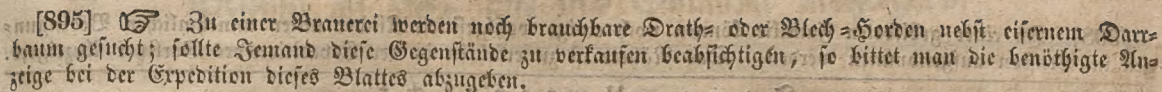 [895] ☞ Zu einer Brauerei werden noch brauchbare Drath= oder Blech=Horden nebst eisernem Darr=
baum gesucht; sollte Jemand diese Gegenstände zu verkaufen beabsichtigen, so bittet man die benöthigte An=
zeige bei der Expedition dieses Blattes abzugeben.